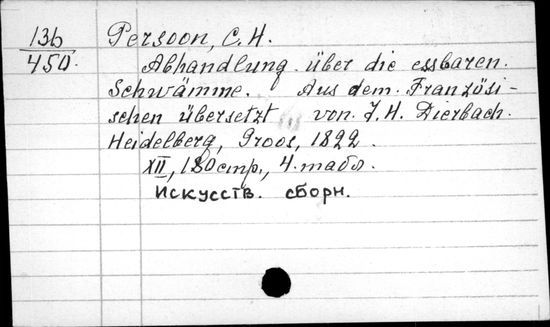 136
450.
Persoon, C. H.
Abhandlung über die essbaren
Schwämme. Aus dem Französi-
schen übersetzt von J. H. Dierbach.
Heidelberg, Groos, 1822.
XII, 180 стр., 4. табл.
Искусств. сборн.